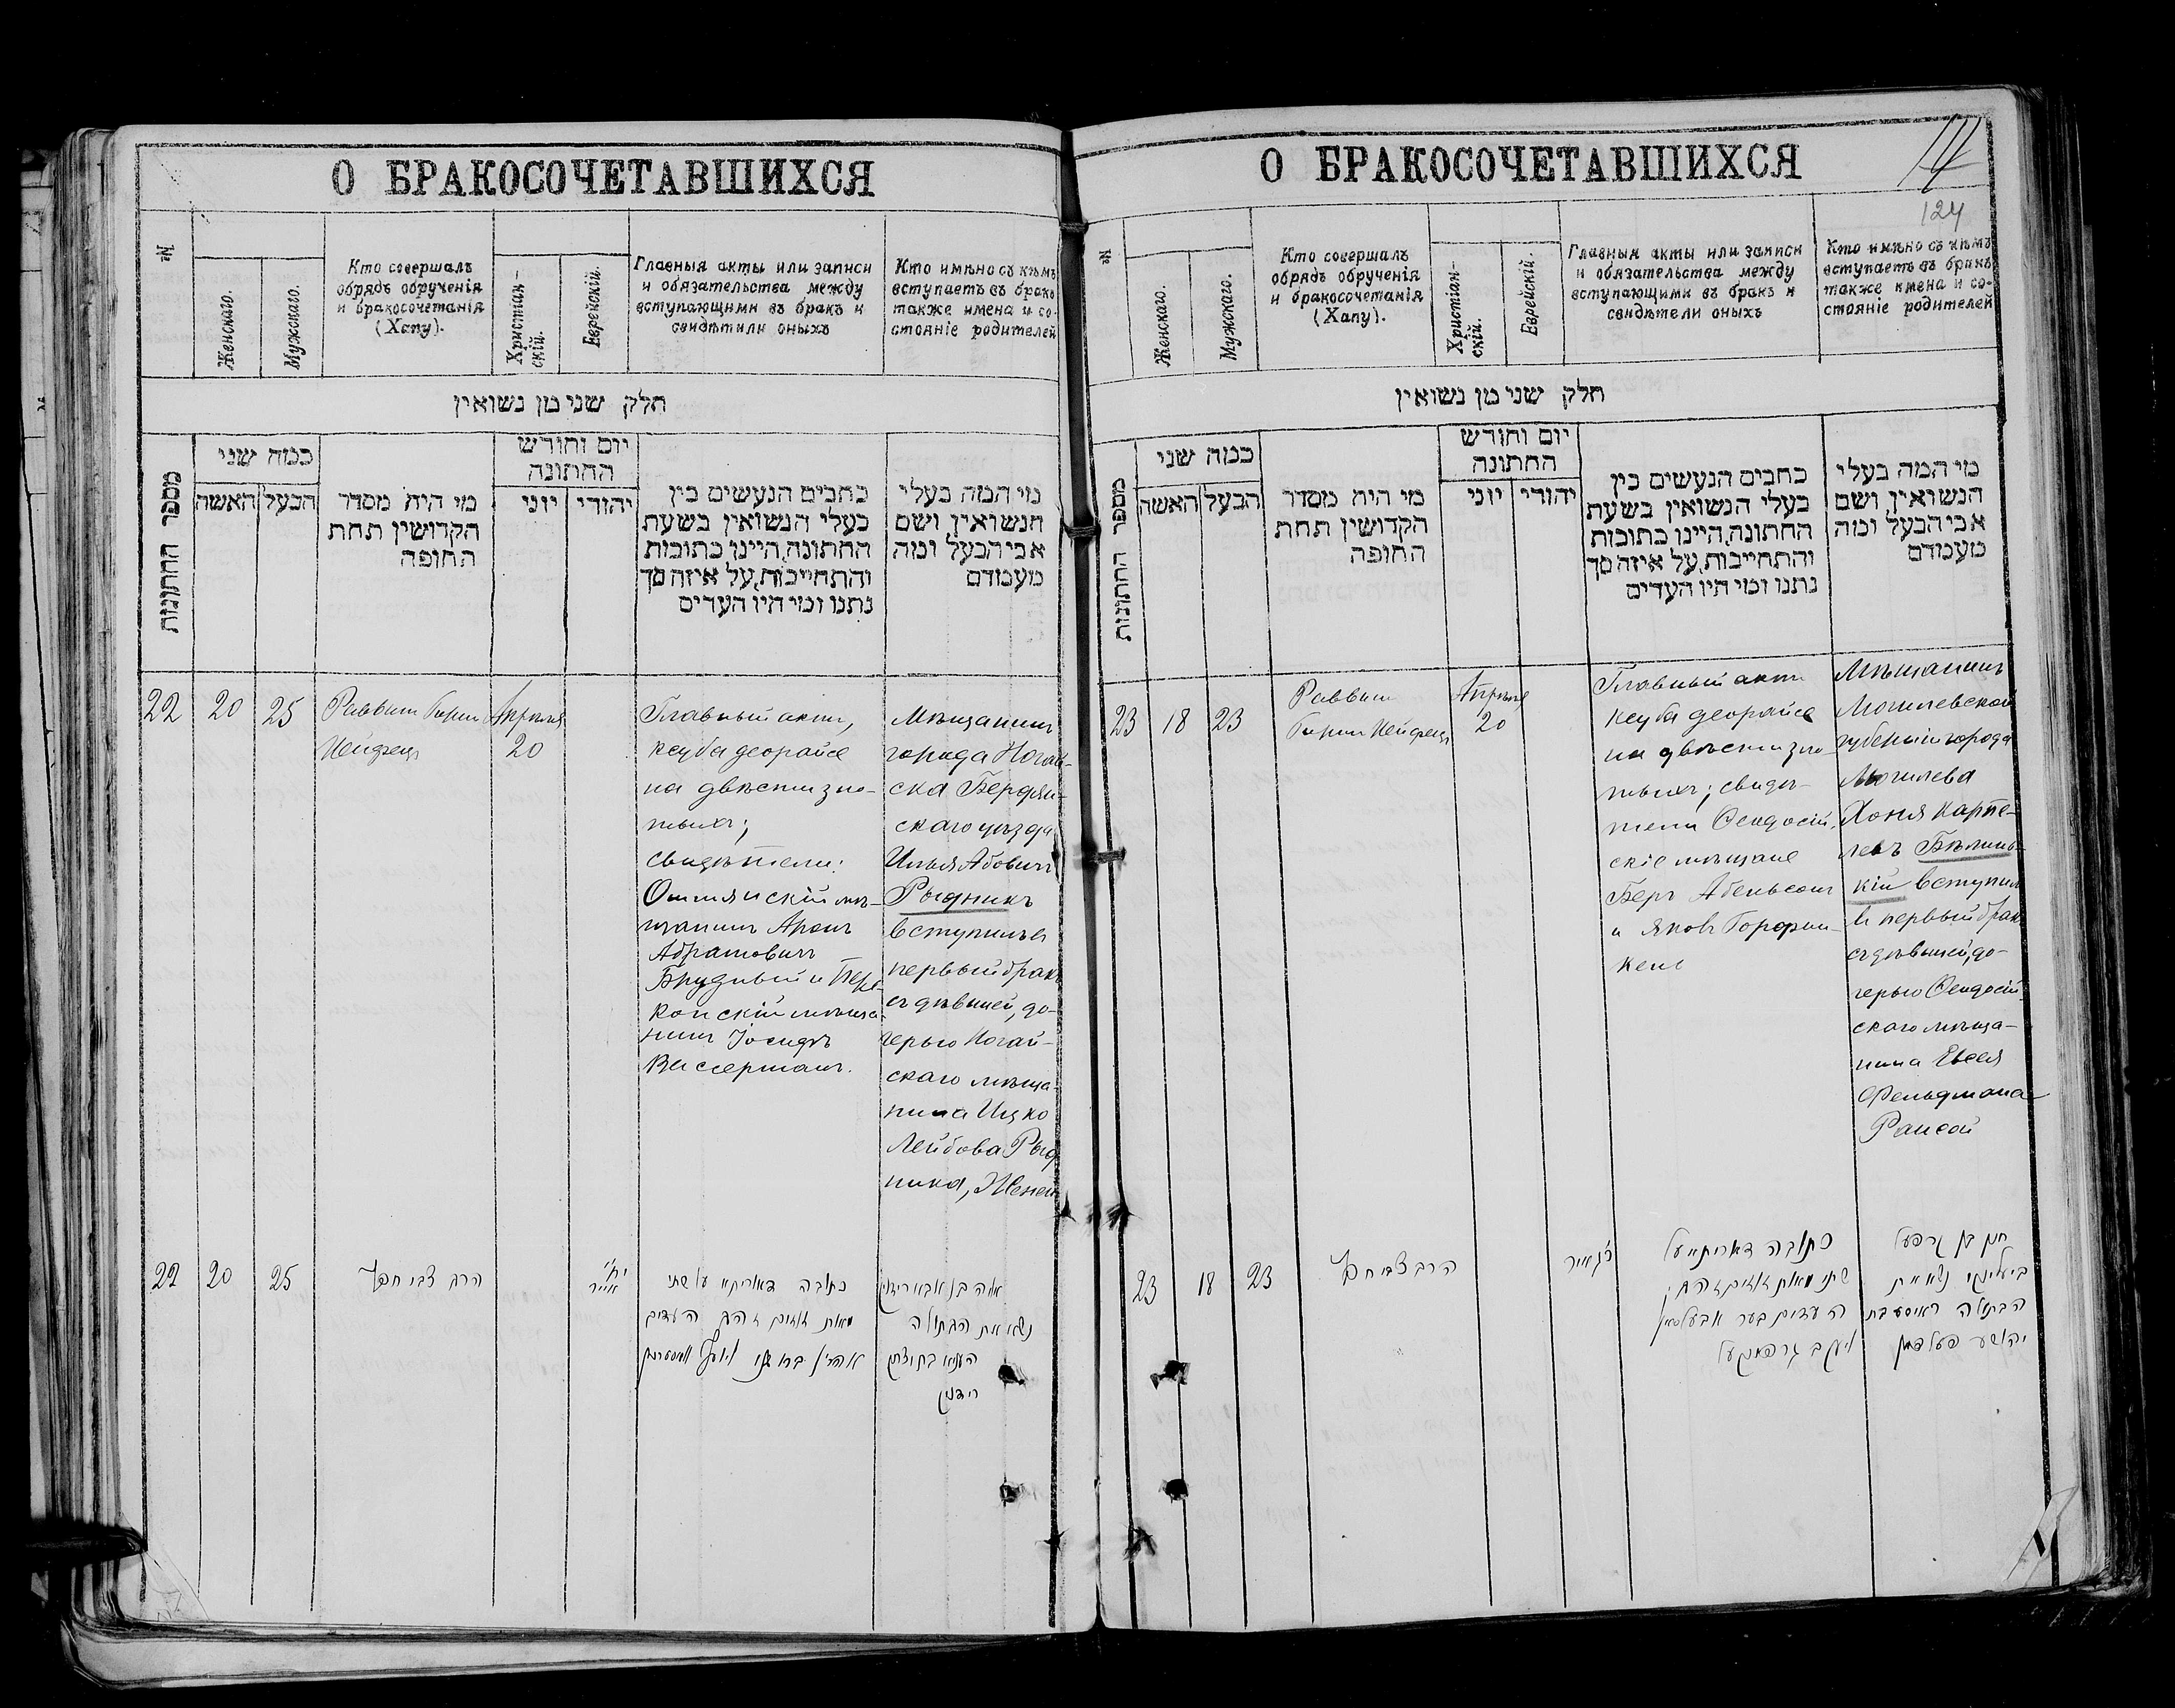 О БРАКОСОЧЕТАВШИХСЯ
№
Женскаго.
Мужскаго.
Кто совершалъ
обрядъ обрученія
и бракосочетанія
(Хапу).
Христіан-
скій.
Еврейскій.
Главныя акты или записи
и обязательства между
вступающими въ бракъ и
свидѣтили оныхъ
Кто имѣно съ кѣмъ
вступаетъ въ бракъ
также имена и со-
стояніе родителей
חלק שני מן נשואין
מספר החתונות
כמה שני
האשה
הבעל
מי היה מסדר
הקדושין תחת
החופה
יום וחודש
החתונה
יוני
יהודי
כתבים הנעשים בין
בעלי הנשואין בשעת
החתונה, היינו כתובות
והתחייבות, על איזה סך
נתנו ומי היו העדים
מי המה בעלי
הנשואין ושם
אבי הבעל ומה
מעמדם
22
20
25
Раввинъ
Апрѣля
20
Главный актъ,
кеуба деорайсе
на двѣсти зло-
тыхъ;
свидѣтели:
Ошмянскій мѣ-
щанинъ Аронъ
Абрамовичъ
Брудный и Пере-
копскій мѣща-
нинъ Іосифъ
Вассерманъ.
Мѣщанинъ
города Ногай-
ска Бердян-
скаго уѣзда
Илья Абовичъ
Рыдникъ
вступилъ въ
первый бракъ
съ дѣвицей, до-
черью Ногай-
скаго мѣща-
нина Ицко
Лейбова Рыд
ника, Женей
22
20
25
הרב צבי
אייר
כתובה דאורייתא על שתי
מאות זהובים העדים
נשא את הבתולה
О БРАКОСОЧЕТАВШИХСЯ
124
№
Женскаго.
Мужскаго.
Кто совершалъ
обрядъ обрученія
и бракосочетанія
(Хапу).
Христіан-
скій.
Еврейскій.
Главныя акты или записи
и обязательства между
вступающими въ бракъ и
свидѣтели оныхъ
Кто имѣно съ кѣмъ
вступаетъ въ бракъ
также имена и со-
стояніе родителей
חלק שני מן נשואין
מספר החתונות
כמה שני
האשה
הבעל
מי היה מסדר
הקדושין תחת
החופה
יום וחודש
החתונה
יוני
יהודי
כתבים הנעשים בין
בעלי הנשואין בשעת
החתונה, היינו כתובות
והתחייבות, על איזה סך
נתנו ומי היו העדים
מי המה בעלי
הנשואין ושם
אבי הבעל ומה
מעמדם
23
18
23
Раввинъ
Апрѣля
20
Главный актъ
кеуба деорайсе
на двѣсти зло-
тыхъ; свидѣ-
тели Ѳеодосій-
скіе мѣщане
Беръ Абельсонъ
и Яковъ Горфин-
кель
Мѣщанинъ
Могилевской
губерніи города
Могилева
Хоня Карпе-
левъ Бѣлинь-
кій вступилъ
въ первый бракъ
съ дѣвицей, до-
черью Ѳеодосій-
скаго мѣща-
нина Евсея
Фельдмана
Раисой
23
18
23
הרב צבי
אייר
כתובה דאורייתא על
הבתולה ראיסע בת
יהושע פעלדמאן